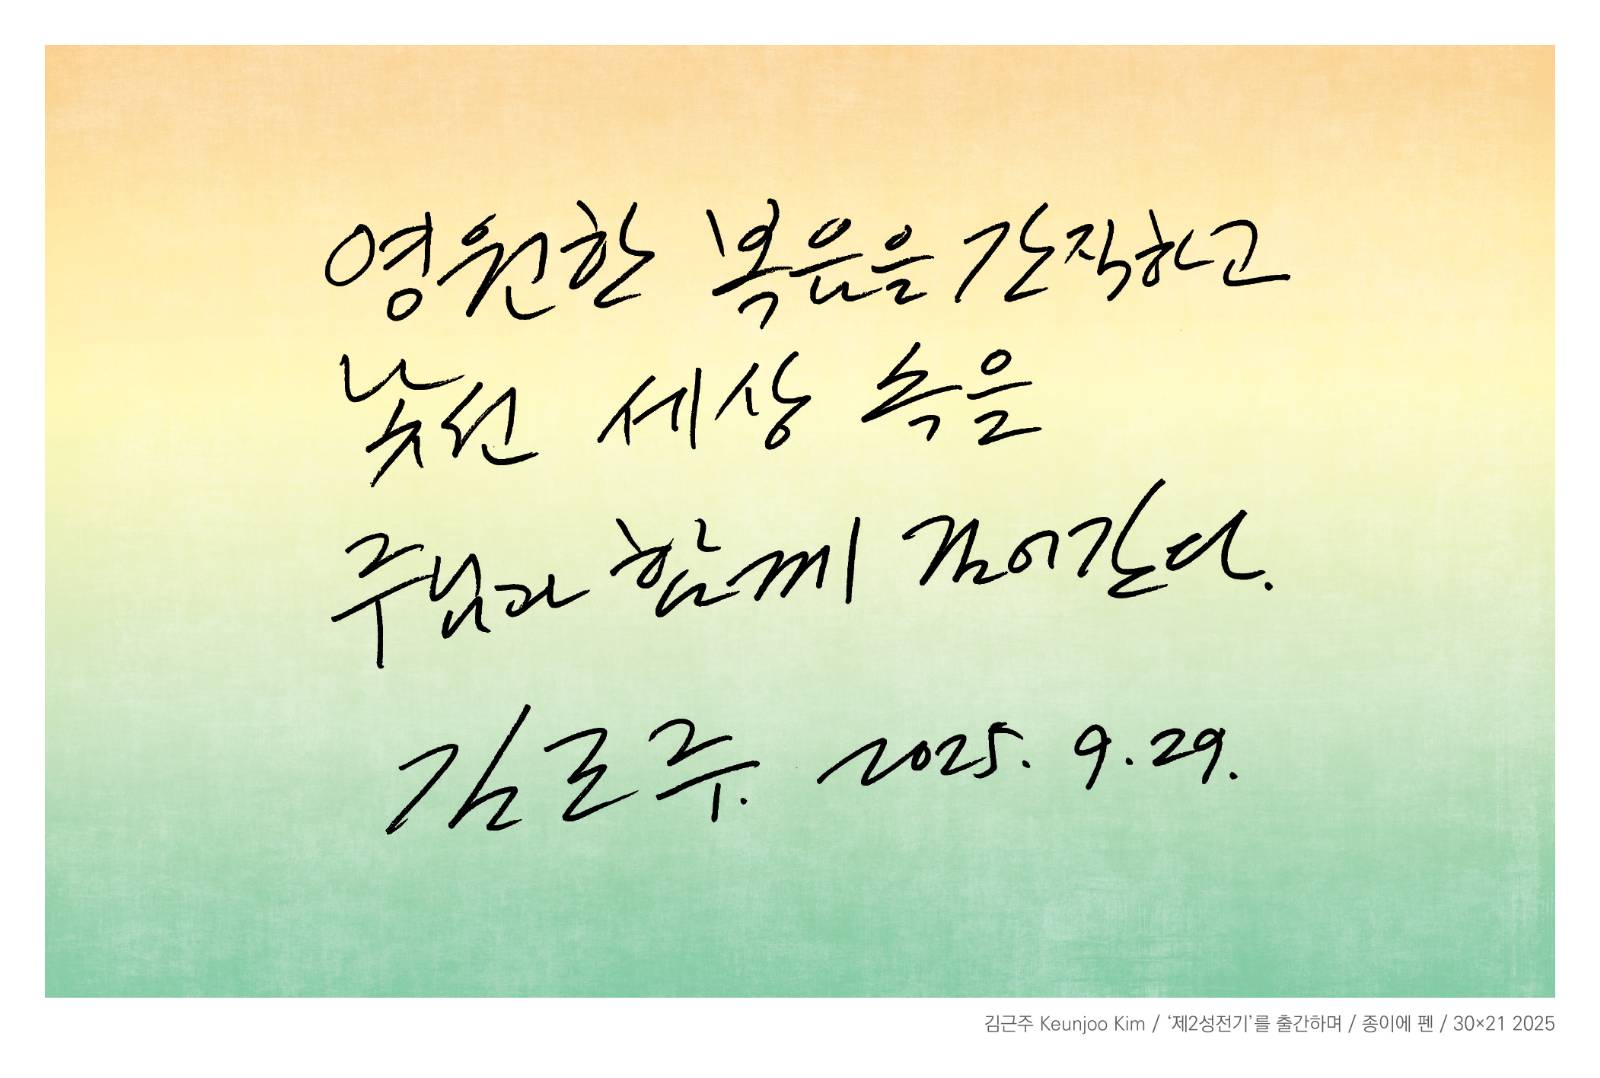 영원한 복음을 간직하고
낯선 세상 속을
주님과 함께 걸어간다.
김근주. 2025. 9. 29.
김근주 Keunjoo Kim / ‘제2성전기’를 출간하며 / 종이에 펜 / 30×21 2025